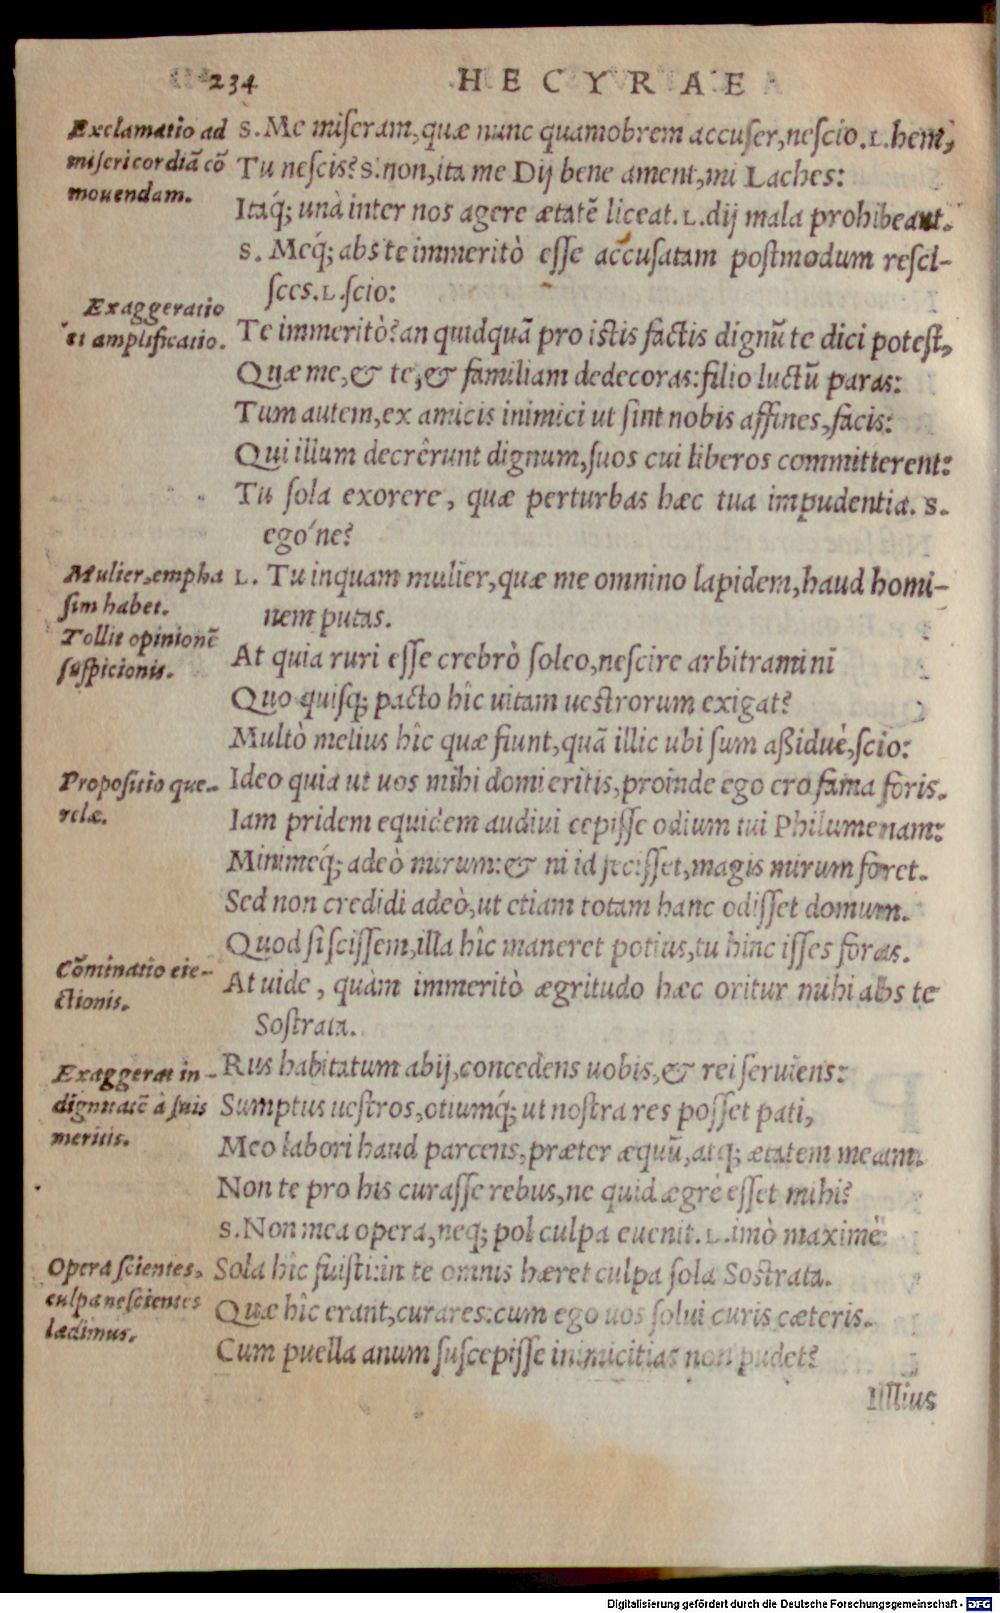 234
HECYRAE
Exclamatio ad
misericordiā cō
mouendam.
S. Me miseram, quæ nunc quamobrem accuser, nescio. L. hem,
Tu nescis? S. non, ita me Dij bene ament, mi Laches:
Itaq́; unà inter nos agere ætatē liceat. L. dij mala prohibeant.
S. Meq́; abs te immeritò esse accusatam postmodum resci-
sces. L. scio:
Exaggeratio
et amplificatio.
Te immeritò? an quidquā pro istis factis dignū te dici potest,
Quæ me, & te, & familiam dedecoras: filio luctū paras:
Tum autem, ex amicis inimici ut sint nobis affines, facis:
Qui illum decrêrunt dignum, suos cui liberos committerent:
Tu sola exorere, quæ perturbas hæc tua impudentia. S.
egó ne?
Mulier, empha
sim habet.
Tollit opinionē
suspicionis.
L. Tu inquam mulier, quæ me omnino lapidem, haud homi-
nem putas.
At quia ruri esse crebrò soleo, nescire arbitramini
Quo quisq; pacto hîc uitam uestrorum exigat?
Multò melius hîc quæ fiunt, quā illic ubi sum aßiduè, scio:
Propositio que-
relæ.
Ideo quia ut uos mihi domi eritis, proinde ego ero fama foris.
Iam pridem equidem audiui cepisse odium tui Philumenam:
Minimeq́; adeò mirum: & ni id fecisset, magis mirum foret.
Sed non credidi adeò, ut etiam totam hanc odisset domum.
Quod si scissem, illa hîc maneret potius, tu hinc isses foras.
Cōminatio eie-
ctionis.
At uide, quàm immeritò ægritudo hæc oritur mihi abs te
Sostrata.
Exaggerat in-
dignitatē à suis
meritis.
Rus habitatum abij, concedens uobis, & rei seruiens:
Sumptus uestros, otiumq́; ut nostra res posset pati,
Meo labori haud parcens, præter æquū, atq; ætatem meam.
Non te pro his curasse rebus, ne quid ægrè esset mihi?
S. Non mea opera, neq; pol culpa euenit. L. imò maximè:
Opera scientes,
culpa nescientes
lædimus.
Sola hîc fuisti: in te omnis hæret culpa sola Sostrata.
Quæ hîc erant, curares: cum ego uos solui curis cæteris.
Cum puella anum suscepisse inimicitias non pudet?
Illius
Digitalisierung gefördert durch die Deutsche Forschungsgemeinschaft - DFG